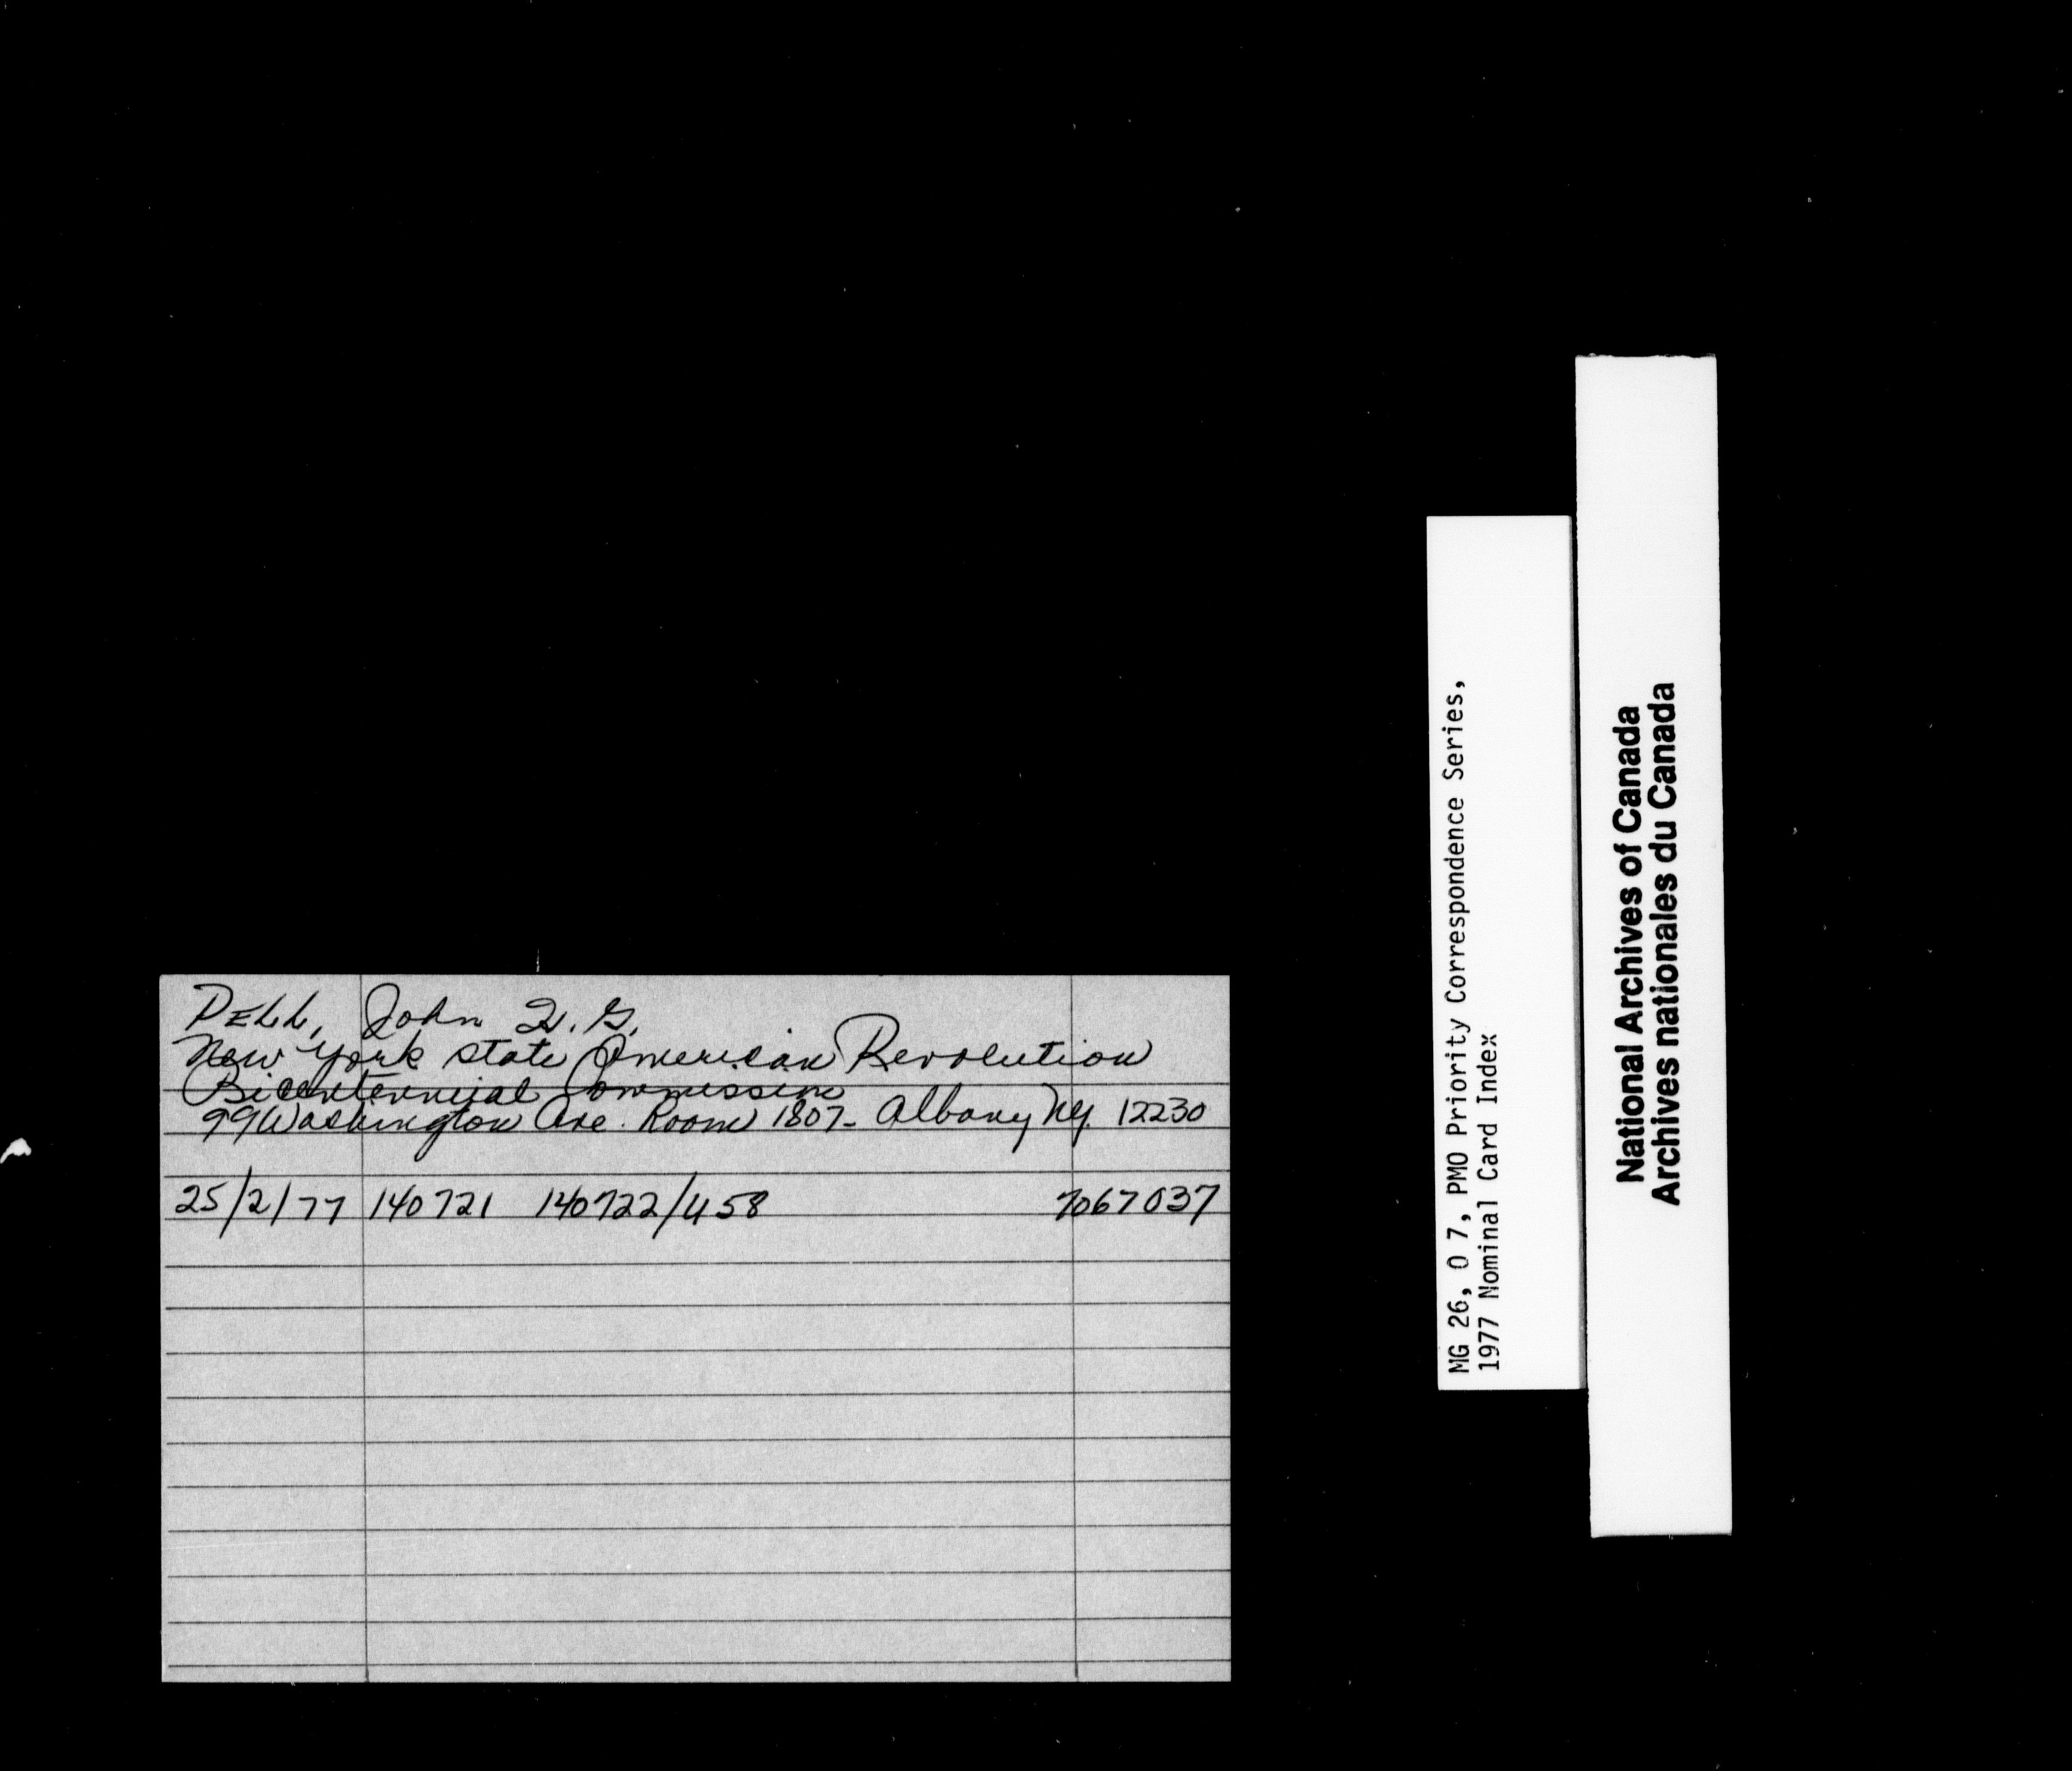 PELL, John H. G.
New York State American Revolution
Bicentennial Commission
99 Washington Ave. Room 1807- Albany NY. 12230
25/2/77 140721 140722/U58 7067037
MG 26, O 7, PMO Priority Correspondence Series,
1977 Nominal Card Index
National Archives of Canada
Archives nationales du Canada